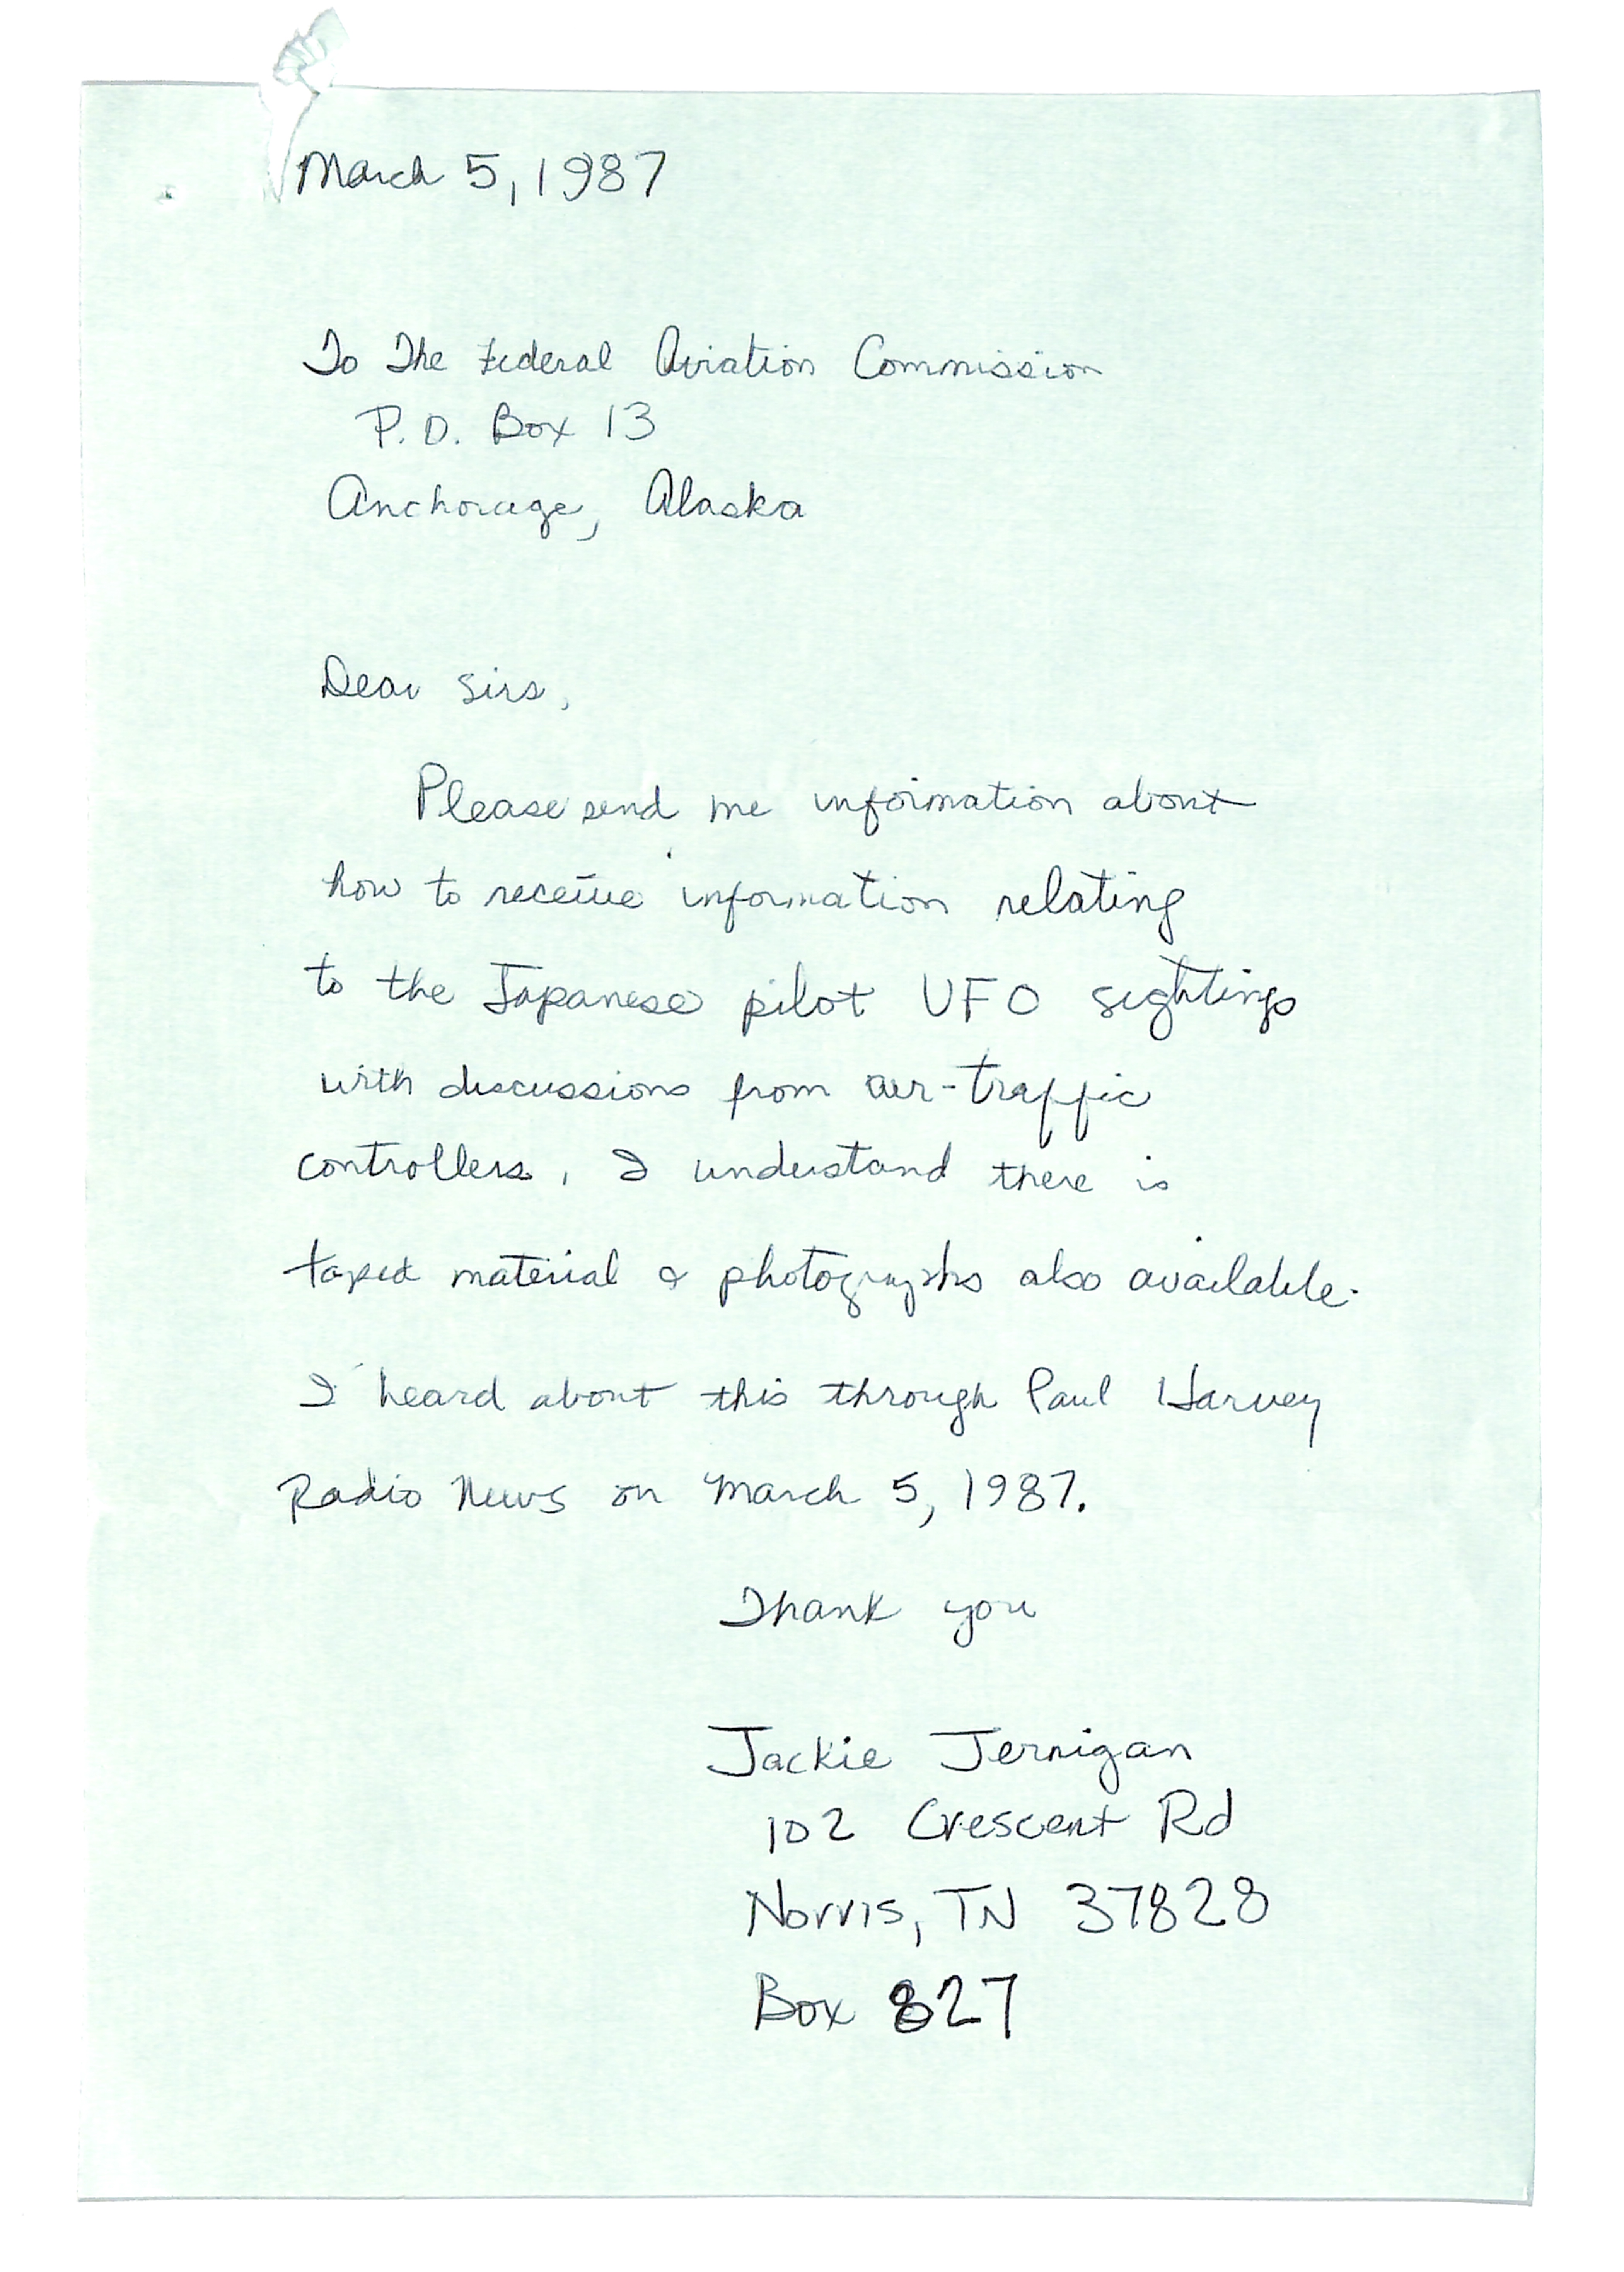 March 5, 1987
To The Federal Aviation Commission
P.O. Box 13
Anchorage, Alaska
Dear Sirs,
Please send me information about
how to receive information relating
to the Japanese pilot UFO sightings
with discussions from air-traffic
controllers, I understand there is
taped material & photographs also available.
I heard about this through Paul Harvey
Radio News on March 5, 1987.
Thank you
Jackie Jernigan
102 Crescent Rd
Norris, TN 37828
Box 827